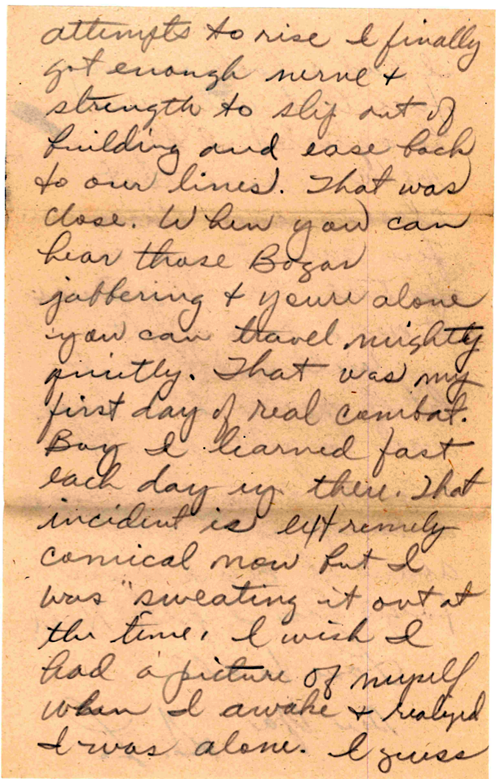 attempts to rise I finally
got enough nerve +
strength to slip out of
building and ease back
to our lines. That was
close. When you can
hear those Bozos
jabbering + youre alone
you can travel mighty
quietly. That was my
first day of real combat.
Boy I learned fast
each day up there. That
incident is extremely
comical now but I
was "sweating it out at
the time. I wish I
had a picture of myself
when I awoke + realized
I was alone. I guess